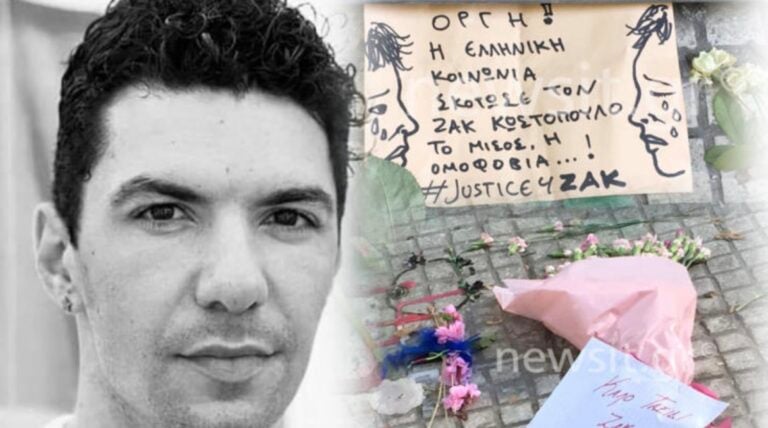 ΟΡΓΗ!!
Η ΕΛΛΗΝΙΚΗ
ΚΟΙΝΩΝΙΑ
ΣΚΟΤΩΣΕ ΤΟΝ
ΖΑΚ ΚΩΣΤΟΠΟΥΛΟ
ΤΟ ΜΙΣΟΣ, Η
ΟΜΟΦΟΒΙΑ...!
#JUSTICE4ZAK
newsit.
Καλό Ταξίδι